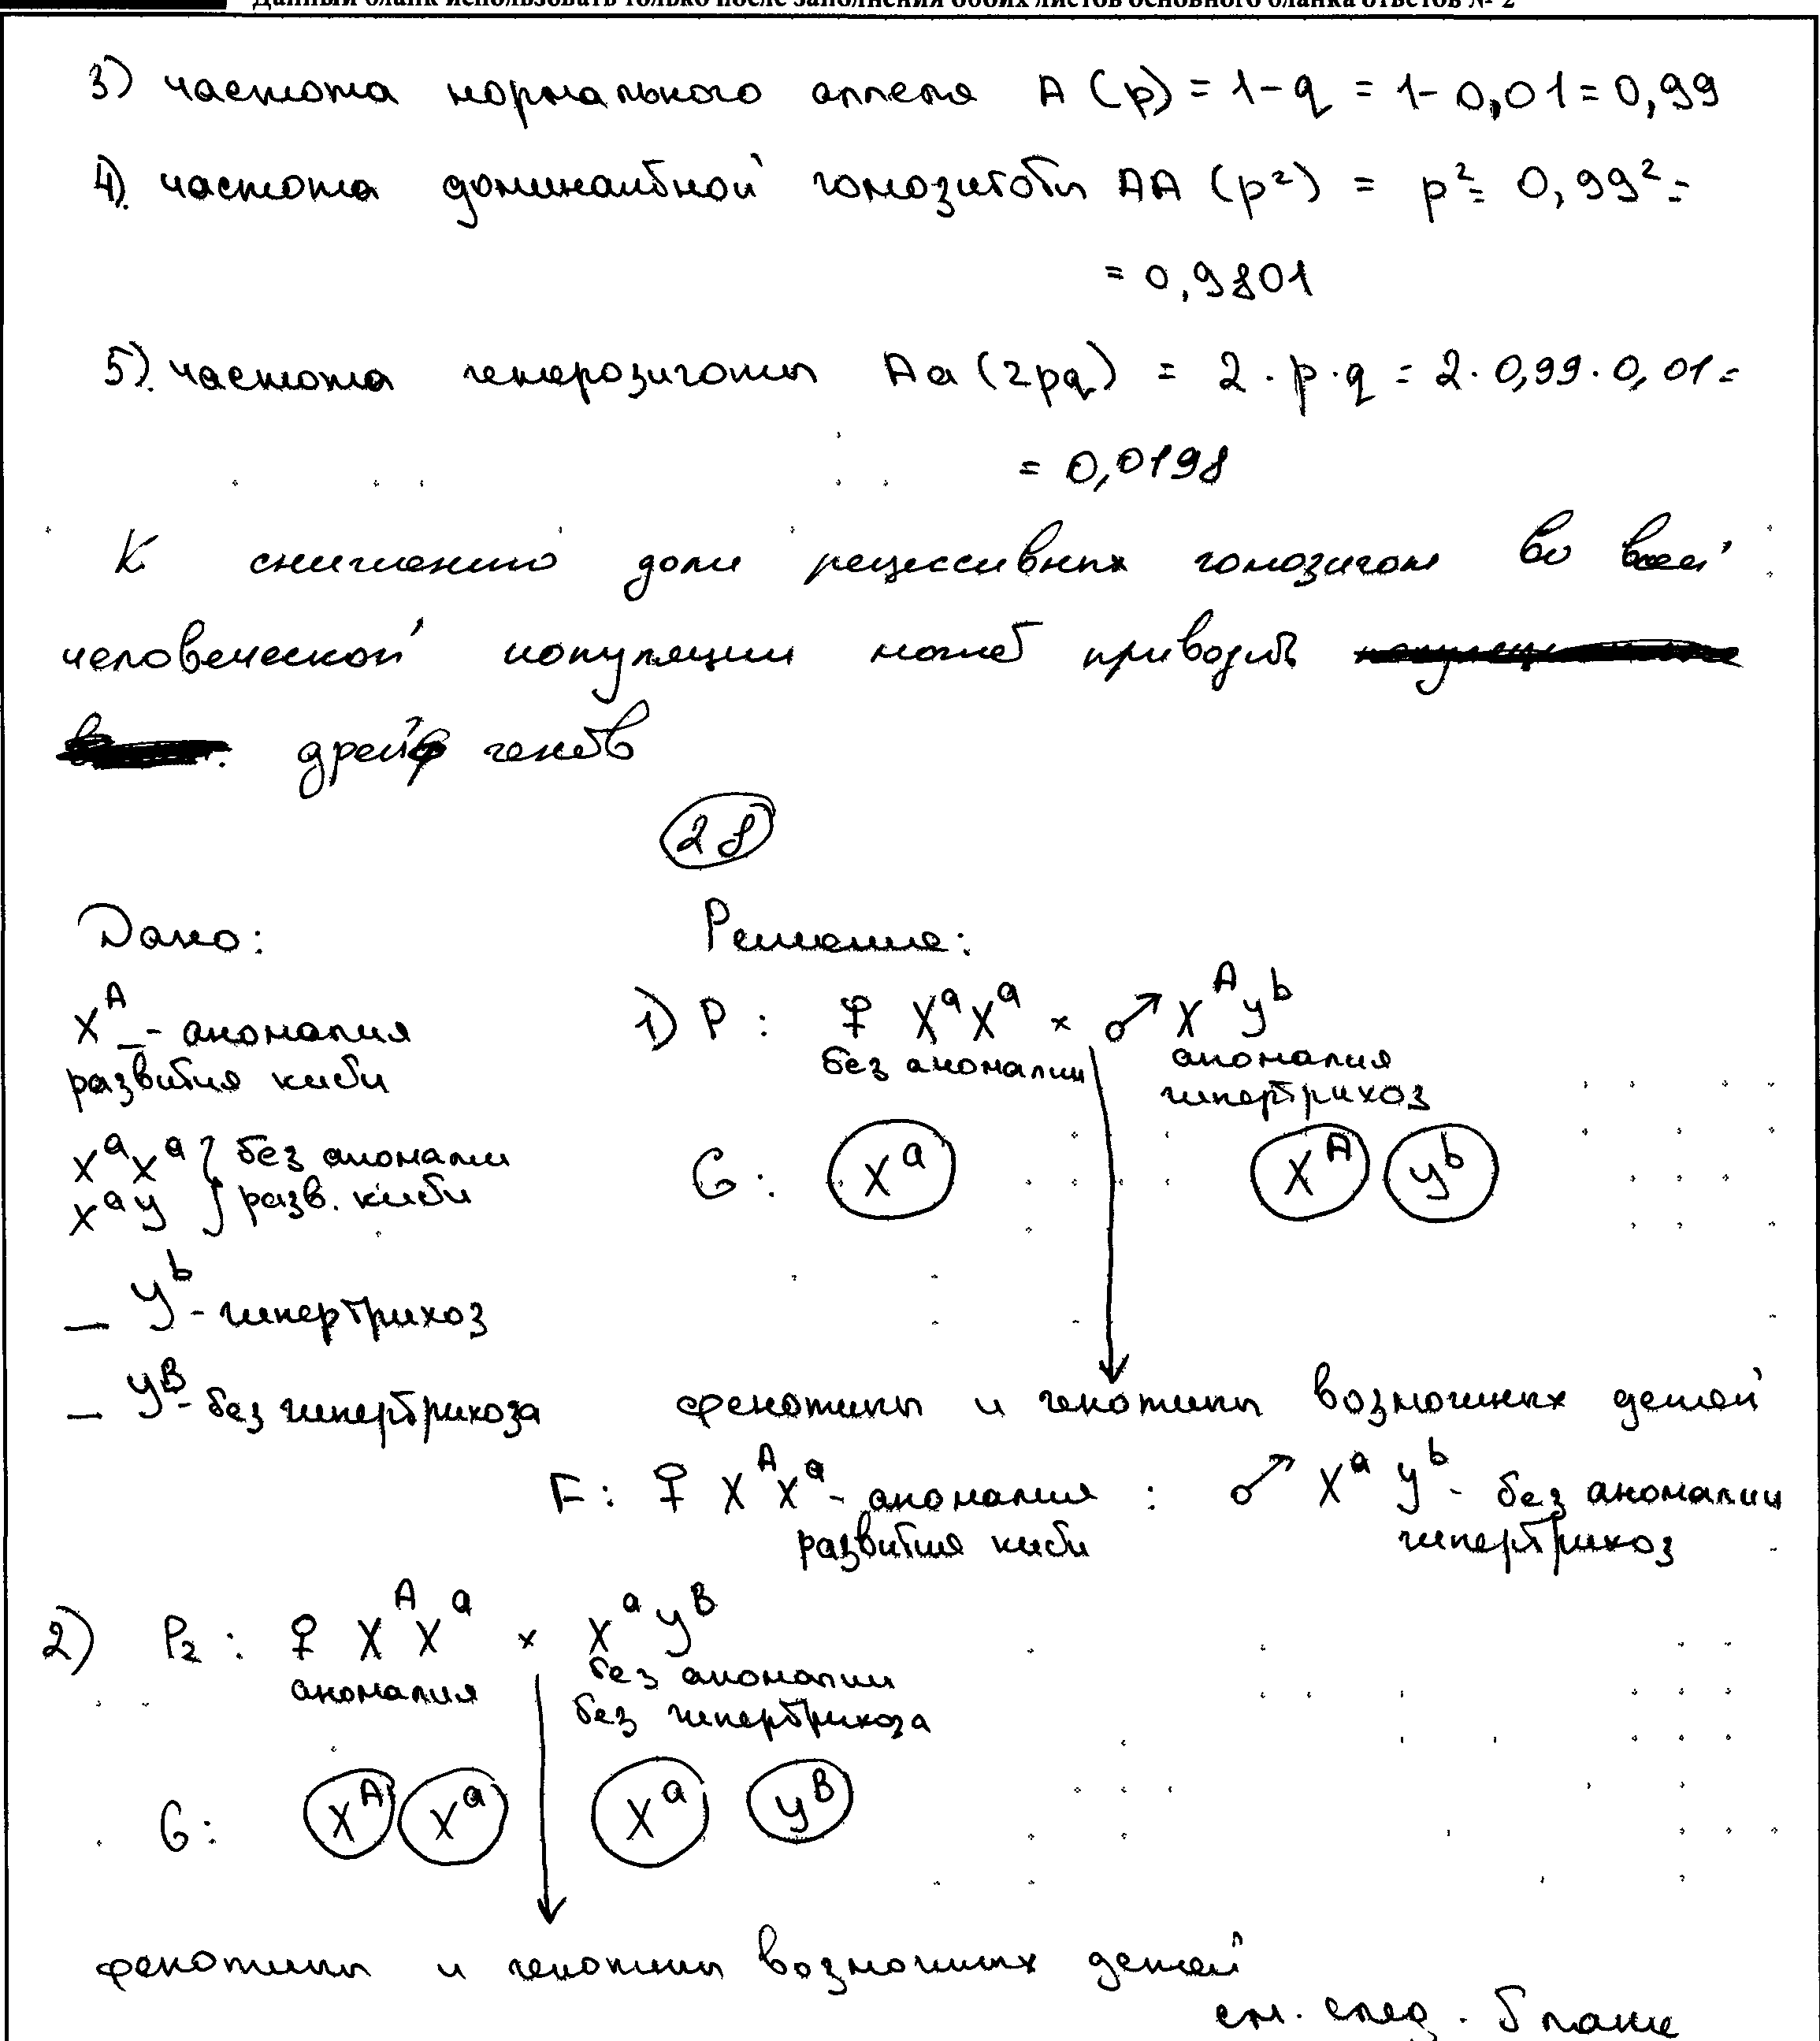 Данный бланк использовать только после заполнения обоих листов основного бланка ответов № 2
3) частота нормального аллеля A (p) = 1-q = 1- 0,01 = 0,99
4). частота доминантной гомозиготы AA (p²) = p² = 0,99² =
= 0,9801
5). частота гетерозиготы Aa (2pq) = 2 · p · q = 2 · 0,99 · 0,01 =
= 0,0198
К снижению доли рецессивных гомозигот во всей
человеческой популяции может приводить
дрейф генов
28
Дано:
Решение:
Xᴬ_ - аномалия
развития кисти
XᵃXᵃ } без аномалии
Xᵃy } разв. кисти
_ yᵇ - гипертрихоз
_ yᴮ - без гипертрихоза
1) P : ♀ XᵃXᵃ × ♂ Xᴬyᵇ
без аномалии аномалия
гипертрихоз
G : Xᵃ Xᴬ yᵇ
фенотипы и генотипы возможных детей
F : ♀ XᴬXᵃ - аномалия : ♂ Xᵃyᵇ - без аномалии
развития кисти гипертрихоз
2) P₂ : ♀ XᴬXᵃ × Xᵃyᴮ
аномалия без аномалии
без гипертрихоза
G : Xᴬ Xᵃ Xᵃ yᴮ
фенотипы и генотипы возможных детей
см. след. бланк